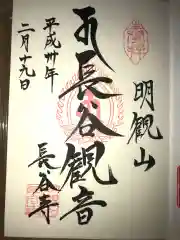 明観山
長谷観音
平成卅年
二月十九日
長谷寺